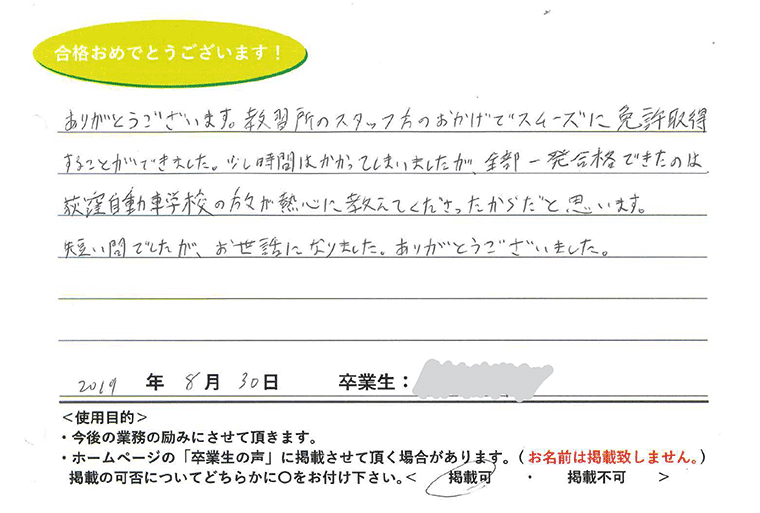 合格おめでとうございます！
ありがとうございます。教習所のスタッフ方のおかげでスムーズに免許取得
することができました。少し時間はかかってしまいましたが、全部一発合格できたのは、
荻窪自動車学校の方々が熱心に教えてくださったからだと思います。
短い間でしたが、お世話になりました。ありがとうございました。
2019 年 8月 30日 卒業生：
＜使用目的＞
・今後の業務の励みにさせて頂きます。
・ホームページの「卒業生の声」に掲載させて頂く場合があります。（お名前は掲載致しません。）
掲載の可否についてどちらかに〇をお付け下さい。＜ 掲載可 ・ 掲載不可 ＞